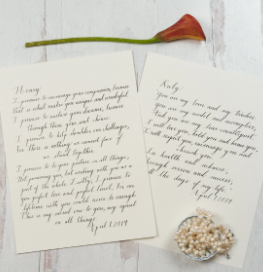 I promise to encourage your compassion, because
that is what makes you unique and wonderful.
I promise to nurture your dreams, because
through them your soul shines.
I promise to help shoulder our challenges,
for there is nothing we cannot face if
we stand together.
I promise to be your partner in all things,
not possessing you, but working with you as a
part of the whole.
you perfect love and perfect trust, for one
lifetime with you could never be enough.
This is my sacred vow to you, my equal
in all things.
April 7, 2009
you are my love and my
you are my
and you are my
I will love you, hold you and honor you,
I will respect you, encourage you and
cherish you,
in health and sickness,
through sorrow and success,
all the days of my life.
April 7, 2009